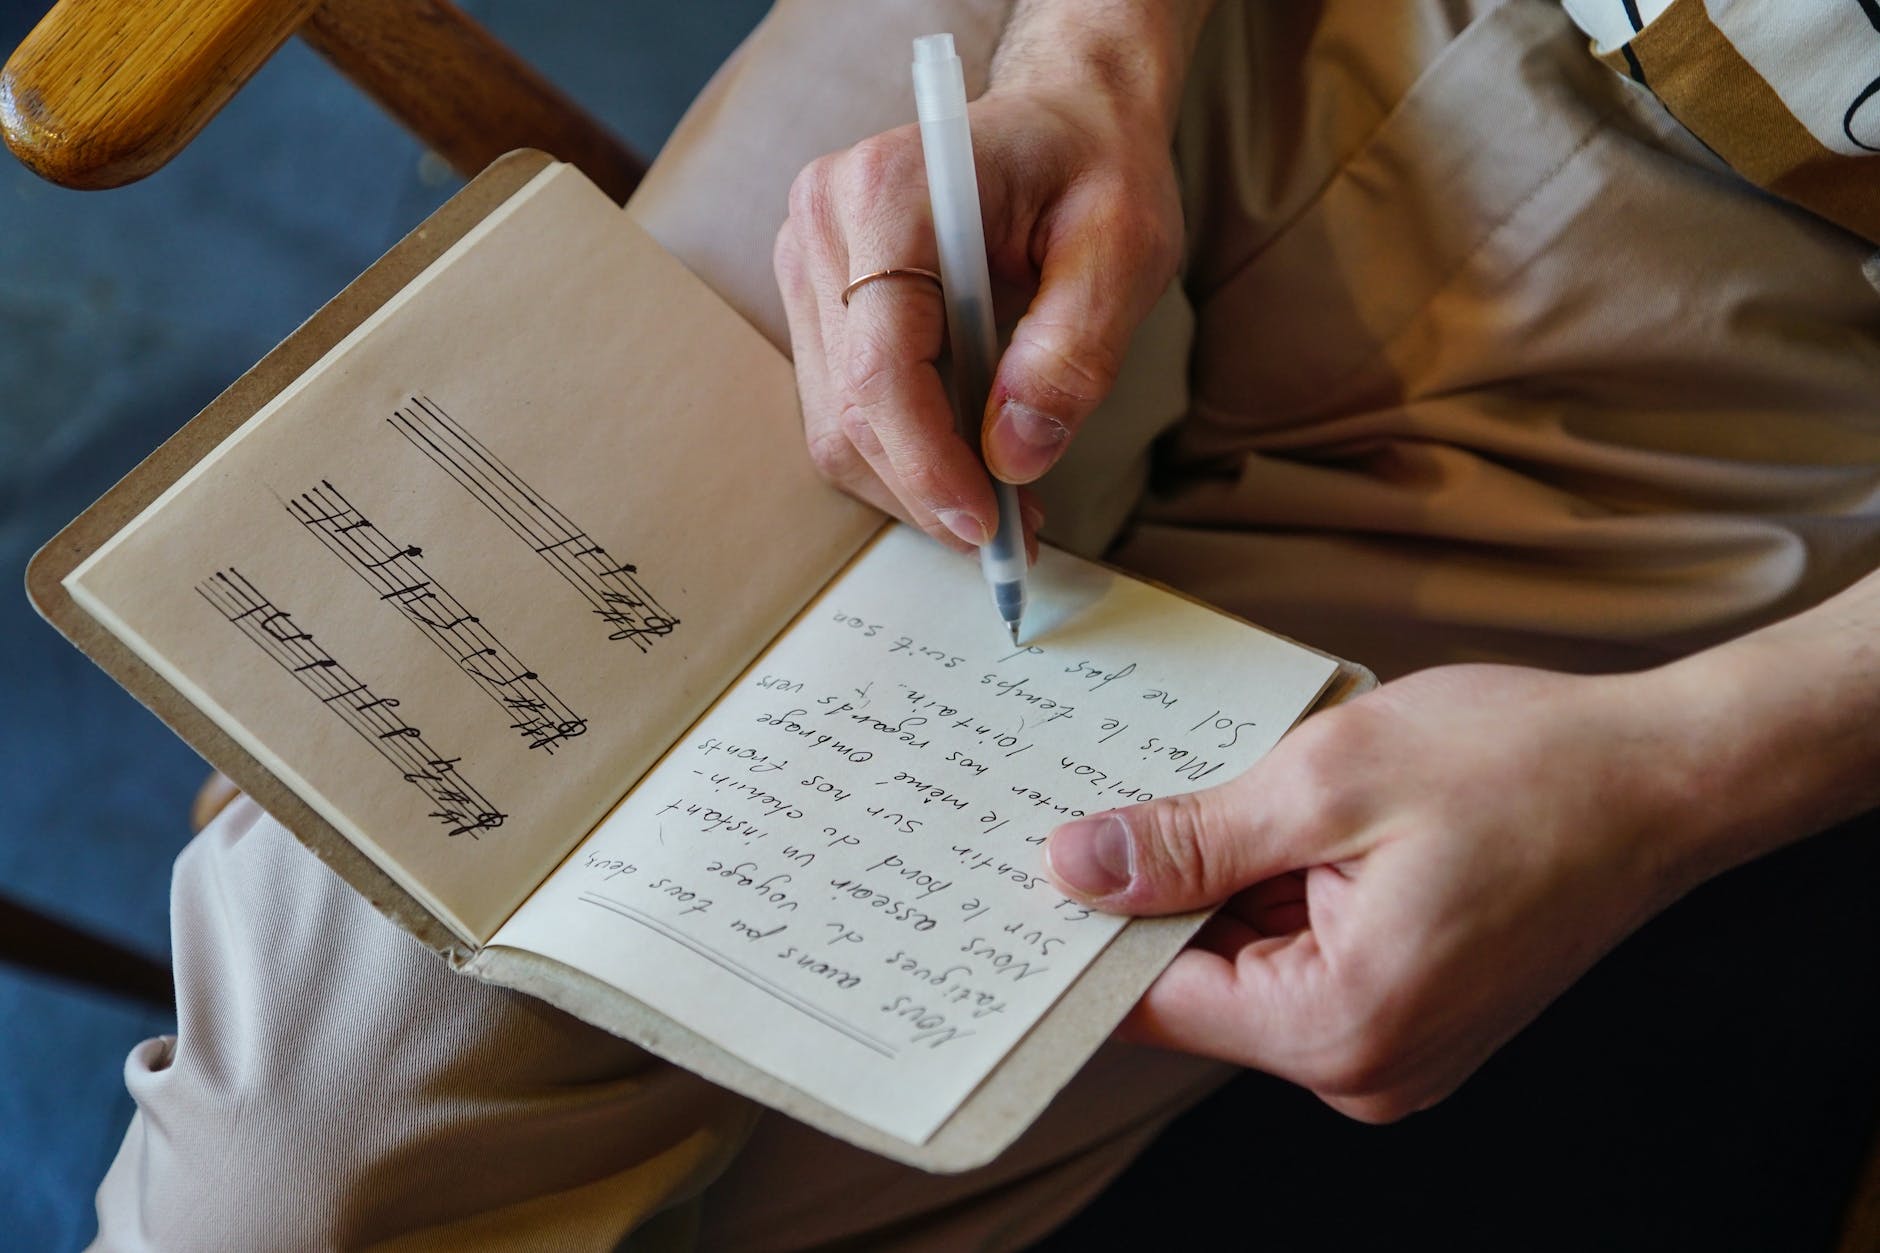 Nous avons pu tous deux,
fatigues du voyage
Nous asseoir un instant
Sur le bord du chemin-
Et sentir sur nos fronts
le même, ombrage
nos regards vers
lointain..
Mais le temps suit son
Sol ne pas d